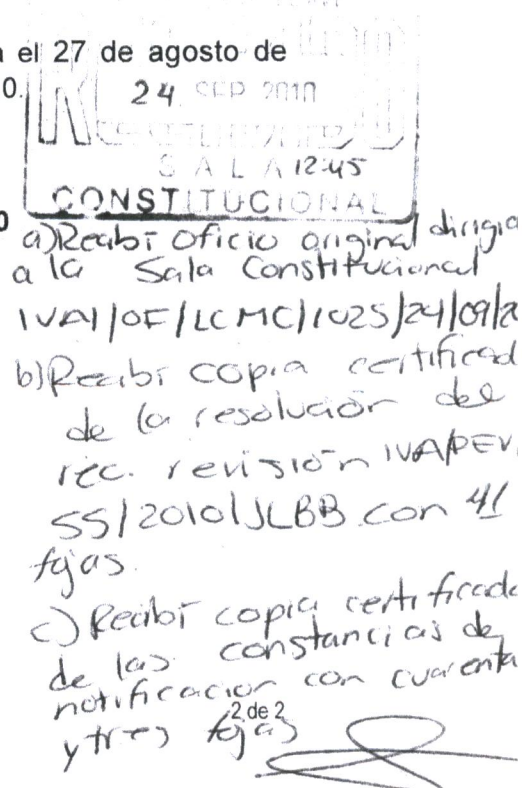 el 27 de agosto de
0.
24 SEP 2010
SALA 12:45
CONSTITUCIONAL
a) Recibí oficio original dirigid
a la Sala Constitucional
IVAI/OF/LCMC/1025/24/09/2
b) Recibí copia certificad
de la resolución del
rec. revisión IVAI/REV/
55/2010/JLBB con 41
fojas.
c) Recibí copia certificada
de las constancias de
notificación con cuarenta
2 de 2
y tres fojas